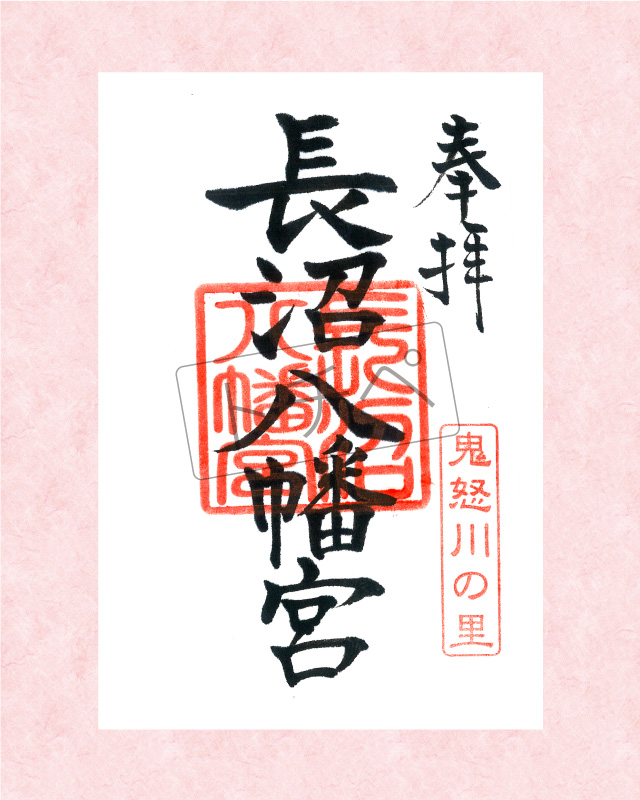 奉拝
鬼怒川の里
長沼八幡宮
長沼
八幡宮
トチペ